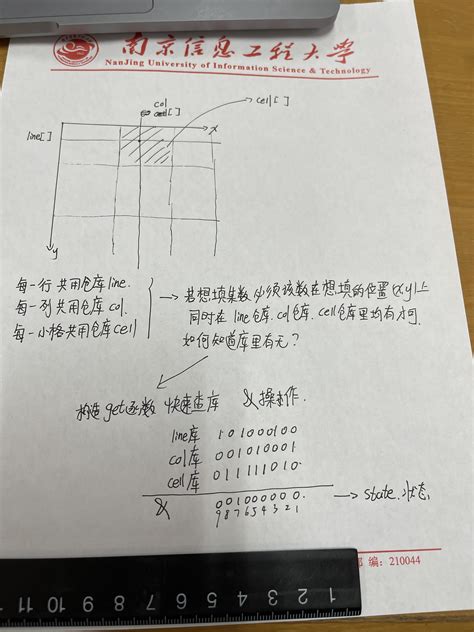 南京信息工程大学
NanJing University of Information Science & Technology
col
cell[ ]
line[ ]
x
y
每一行共用仓库line.
每一列共用仓库col.
每一小格共用仓库cell
若想填某数必须该数在想填的位置(x,y)上
同时在line仓库.col仓库.cell仓库里均有才可.
如何知道库里有无?
构造get函数 快速查库 &操作.
line库 1 0 1 0 0 0 1 0 0
col库 0 0 1 0 1 0 0 0 1
cell库 0 1 1 1 1 1 0 1 0
& 0 0 1 0 0 0 0 0 0.
9 8 7 6 5 4 3 2 1
state.状态
编：210044
1 2 3 4 5 6 7 8 9 10 11